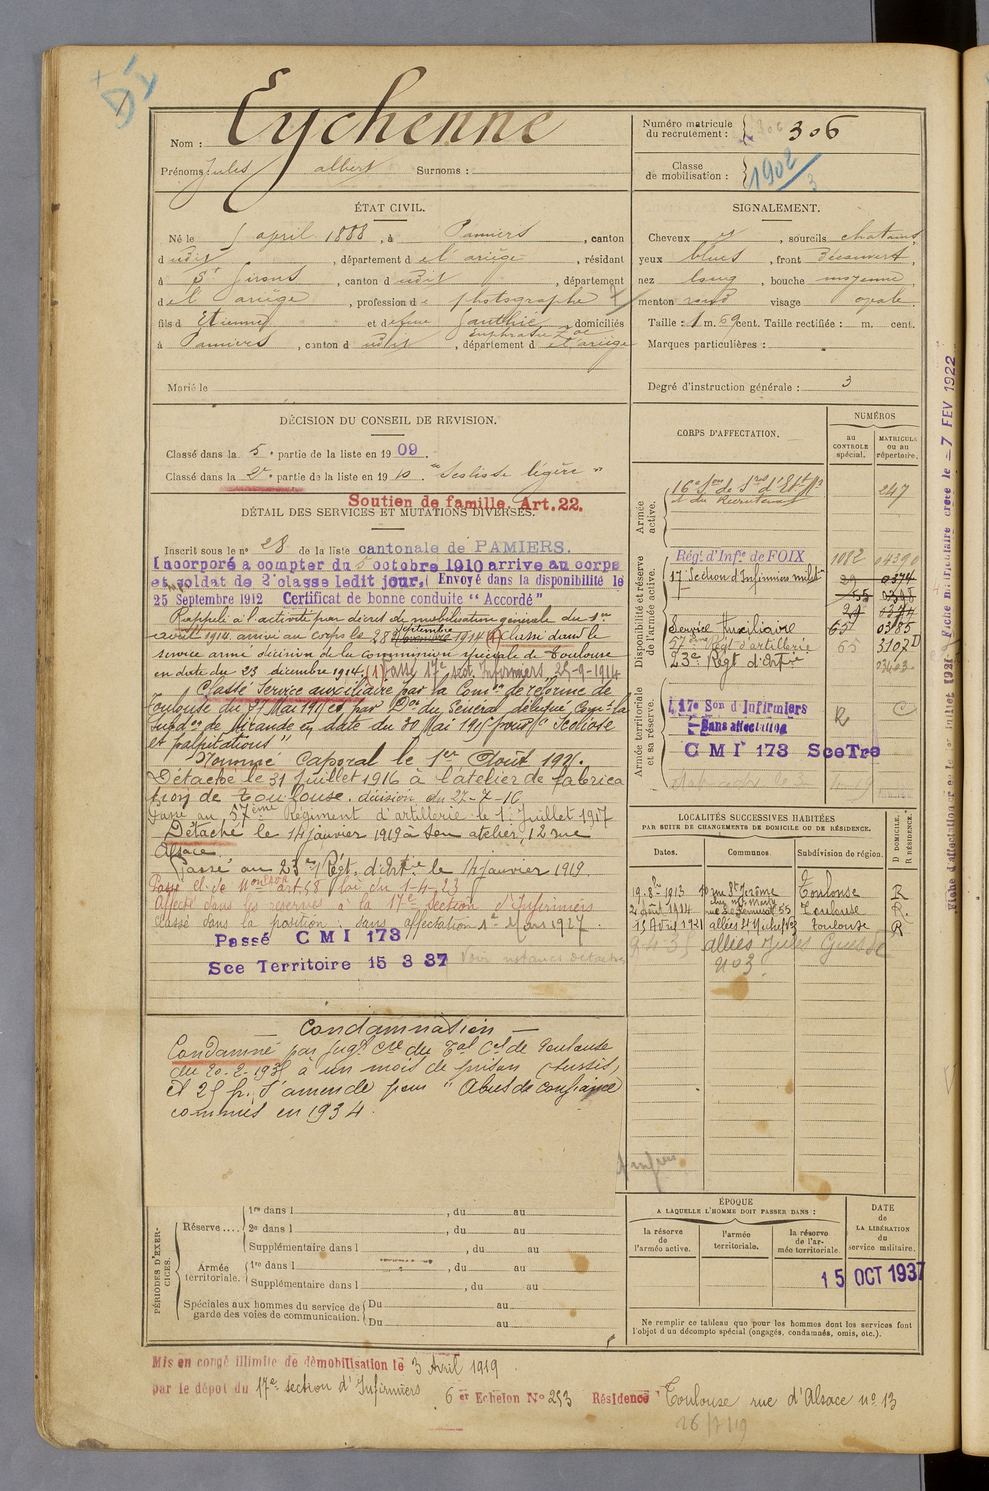 Nom : Eychenne
Prénoms : Jules albert Surnoms :
Numéro matricule du recrutement : 306
Classe de mobilisation : 1902
3
ÉTAT CIVIL.
Né le 5 april 1888, à Pamiers, canton
d udit, département de l'ariège, résidant
à St Girons, canton d udit, département
de l'ariège, profession de photographe
fils d Etienne et de feue Gauthié domiciliés
à Pamiers, canton d udit, département de l'ariège
Marié le
SIGNALEMENT.
Cheveux et, sourcils chatains,
yeux bleus, front découvert,
nez long, bouche moyenne,
menton rond visage ovale.
Taille : 1 m. 69 cent. Taille rectifiée : m. cent.
Marques particulières :
Degré d'instruction générale : 3
DÉCISION DU CONSEIL DE REVISION.
Classé dans la 5e partie de la liste en 1909
Classé dans la 2e partie de la liste en 1910 "Scoliose légère"
Soutien de famille. Art. 22.
DÉTAIL DES SERVICES ET MUTATIONS DIVERSES.
Inscrit sous le no 28 de la liste cantonale de PAMIERS.
Incorporé à compter du 5 octobre 1910 arrivé au corps
et soldat de 2e classe ledit jour. Envoyé dans la disponibilité le
25 Septembre 1912 Certificat de bonne conduite "Accordé"
Rappelé à l'activité par décret de mobilisation générale du 1er
août 1914. arrivé au corps le 28 septembre 1914 (1) Classé dans le
service armé décision de la commission spéciale de Toulouse
en date du 23 décembre 1914. (1) Passé 17e sect. Infirmiers 25-9-1914
Classé Service auxiliaire par la Comon de réforme de
Toulouse du
de Mirande en date du 30 Mai 1915 pour "Scoliose
et palpitations".
Nommé Caporal le 1er Août 191
Détaché le 31 Juillet 1916 à l'atelier de fabrica
tion de Toulouse. décision du 27-7-16
Passé au 57ème Régiment d'artillerie le 1er Juillet 1917
Détaché le 14 janvier 1919 à son atelier, 12 rue
Alsace.
Passé au 23e Régt. d'Artie le 14 janvier 1919.
Passé cl. de Mobon art. 58 loi du 1-4-23
Affecté dans les réserves à la 17e Section d'Infirmiers
Classé dans la position "sans affectation" 1er Mars 1927
Passé CMI 173
Sce Territoire 15 3 37
CORPS D'AFFECTATION.
NUMÉROS
AU CONTROLE spécial.
MATRICULE ou au répertoire.
Armée active.
16e Son de Sres d'Et. Mr
et du Recrutement 247
Disponibilité et réserve de l'armée active.
Régt d'Infie de FOIX 1082 04390
17 Section d'Infirmiers milit 29 0374
Service Auxiliaire 65 0385
57ème Régt d'artillerie 65 3102 D
23e Régt d'Artie
Armée territoriale et sa réserve.
17e Son d'Infirmiers R
Sans affectation
CMI 173 Sce Tre
LOCALITÉS SUCCESSIVES HABITÉES
PAR SUITE DE CHANGEMENTS DE DOMICILE OU DE RÉSIDENCE.
Dates. Communes. Subdivision de région. D DOMICILE. R RÉSIDENCE.
19.8bre 1913 10 rue St Jérôme Toulouse R
2 août 1914 55 Toulouse R.
15 Avril 1921 allées St Michel No 3 Toulouse R
9-4-35 allées Jules Guesde
No 3
Condamnation
Condamné par jugt Cre du Tal Cel de Toulouse
du 20-2-1935 à un mois de prison (sursis)
et 25 fr. d'amende pour "Abus de confiance
commis en 1934.
PÉRIODES D'EXERCICES.
Réserve....
1re dans l , du au
2e dans l , du au
Supplémentaire dans l , du au
Armée territoriale.
1re dans l , du au
Supplémentaire dans l , du au
Spéciales aux hommes du service de garde des voies de communication.
Du au
Du au
ÉPOQUE
A LAQUELLE L'HOMME DOIT PASSER DANS :
la réserve de l'armée active.
l'armée territoriale.
la réserve de l'armée territoriale.
DATE DE LA LIBÉRATION du service militaire.
15 OCT 1937
Ne remplir ce tableau que pour les hommes dont les services font
l'objet d'un décompte spécial (engagés, condamnés, omis, etc.).
Mis en congé illimité de démobilisation le 3 Avril 1919
par le dépôt du 17e section d'Infirmiers 6 er Echelon No 253 Résidence Toulouse rue d'Alsace no 13